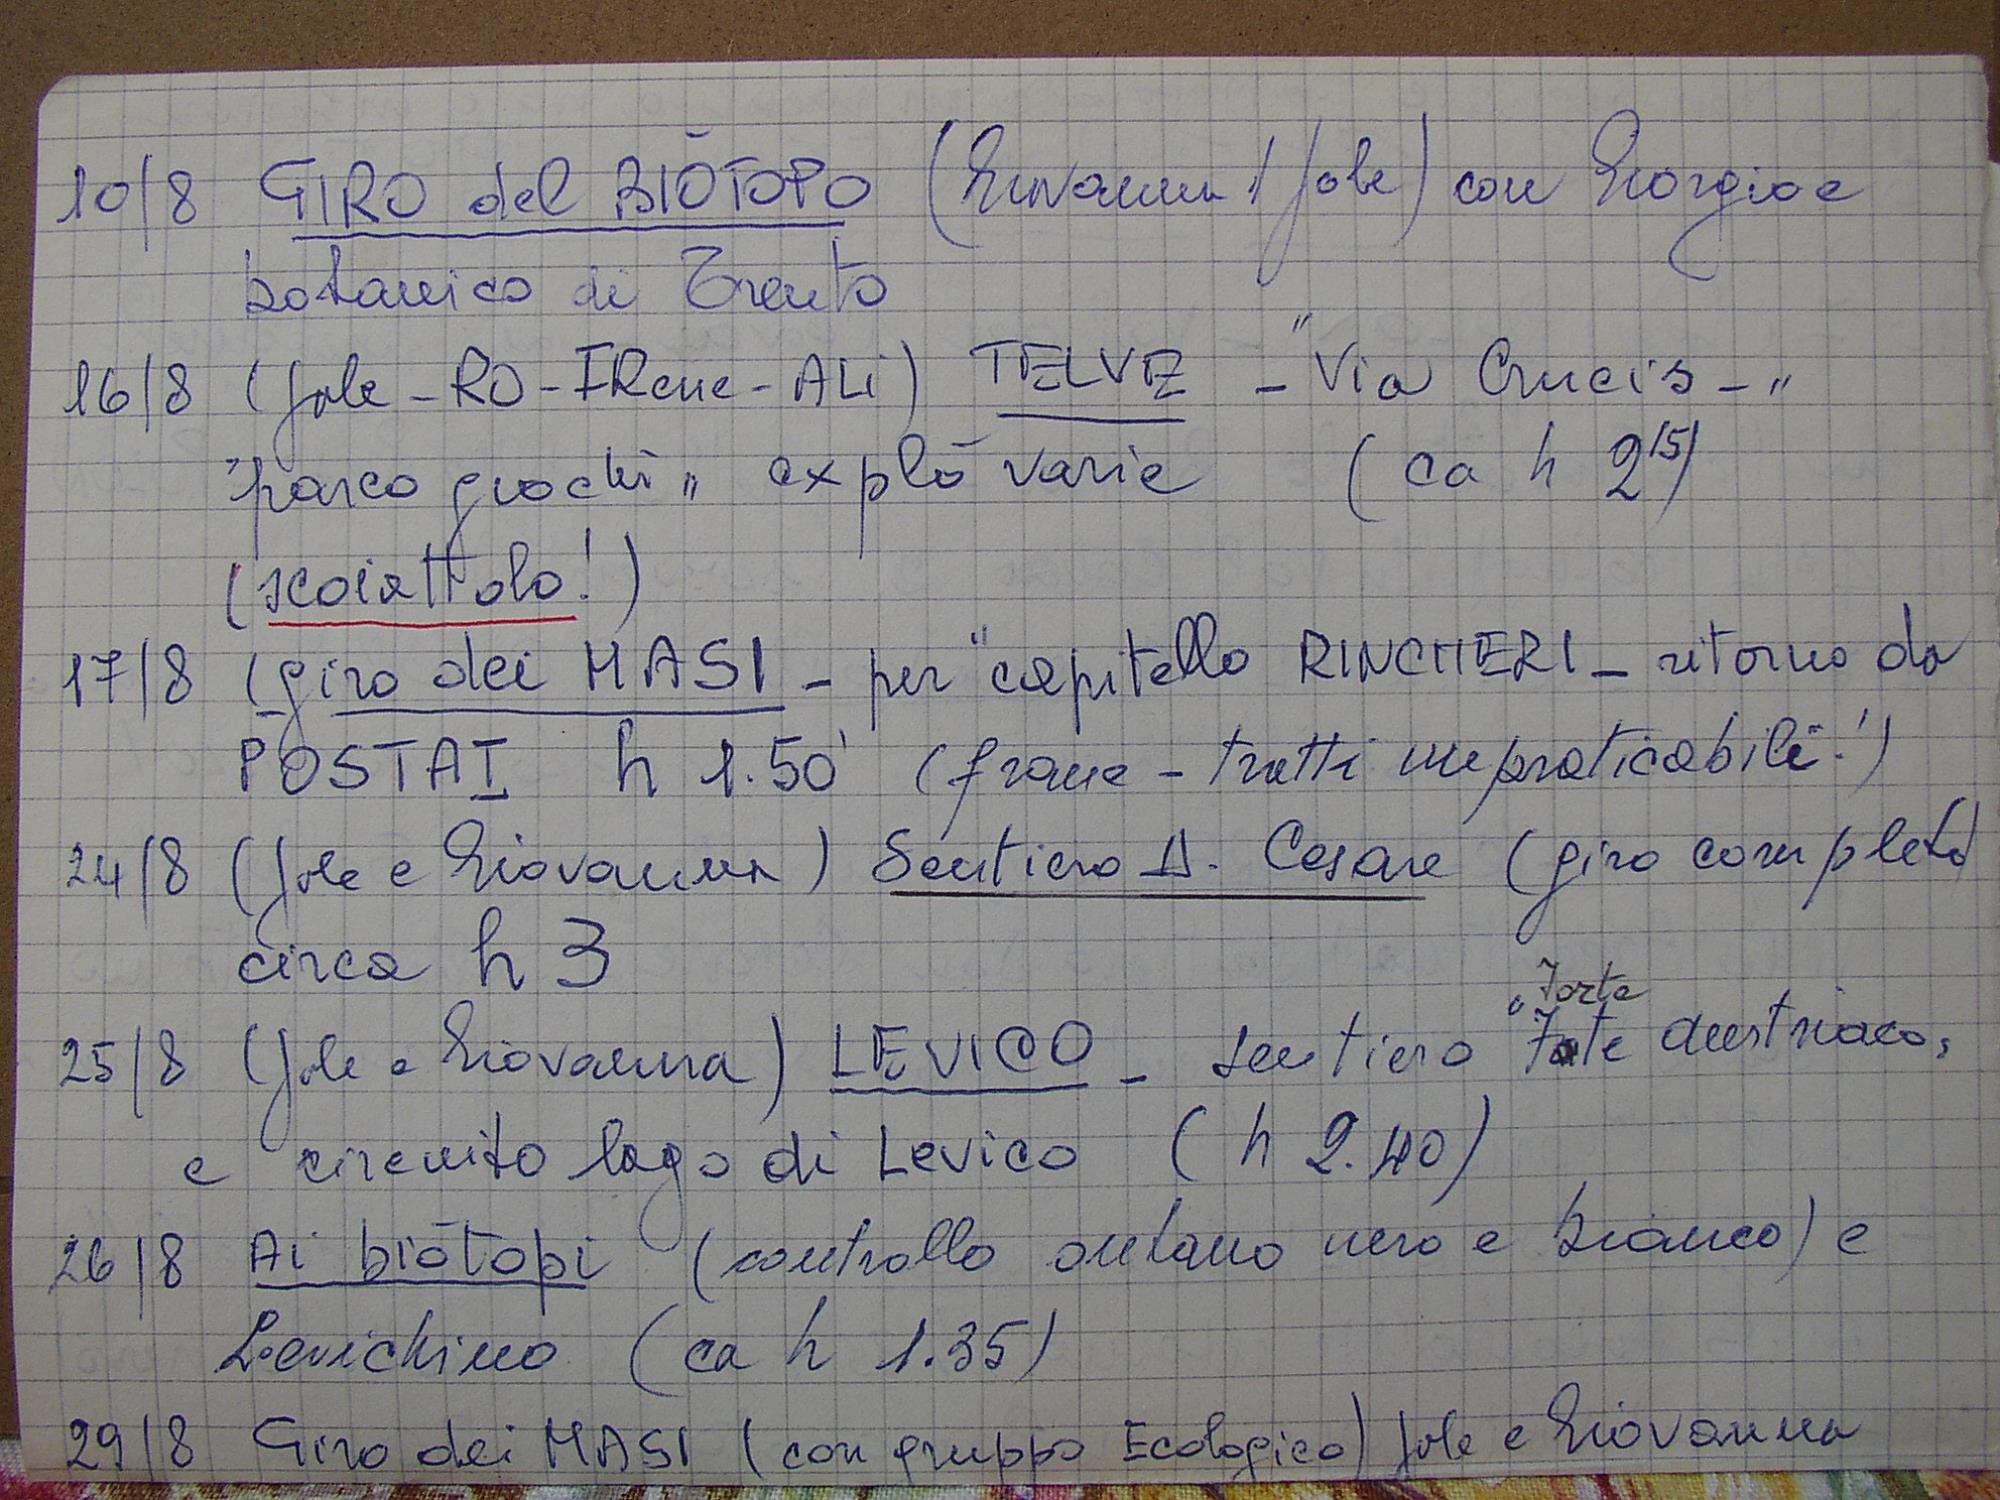 10/8 GIRO del BIŌTOPO (Giovanna / Jole) con Giorgio e
botanico di Trento
16/8 (Jole - RO - IRene - ALi) TELVE - "Via Crucis -"
"parco giochi" explō varie (ca h 2 15)
(scoiattolo!)
17/8 (giro dei MASI - per "capitello RINCHERI - ritorno da
POSTAI h 1.50' (frane - tratti impraticabili!)
24/8 (Jole e Giovanna) Sentiero D. Cesare (giro completo)
circa h 3
"Forte
25/8 (Jole e Giovanna) LEVICO - sentiero Forte austriaco,
e circuito lago di Levico (h 2.40)
26/8 Ai biōtopi (controllo ontano nero e bianco) e
Levichino (ca h 1.35)
29/8 Giro dei MASI (con gruppo Ecologico) Jole e Giovanna